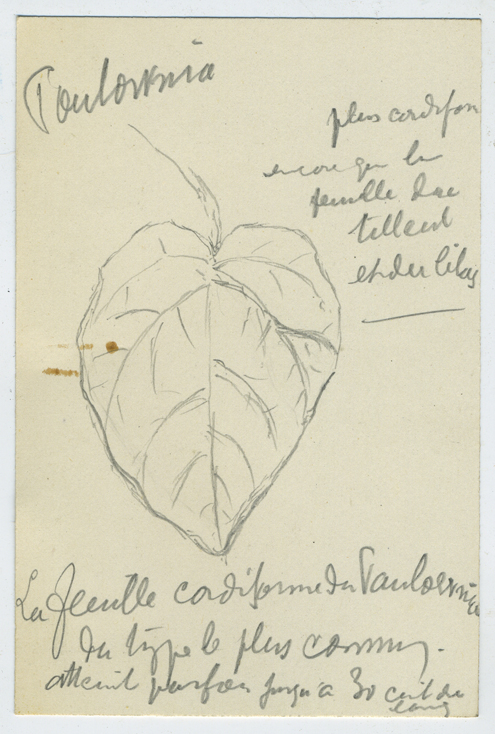 Paulownia
plus cordiform
encore que la
feuille du
tilleul
et du lilas
La feuille cordiforme du Paulownia
du type le plus connu.
atteint parfois jusqu'à 30 cent de
long